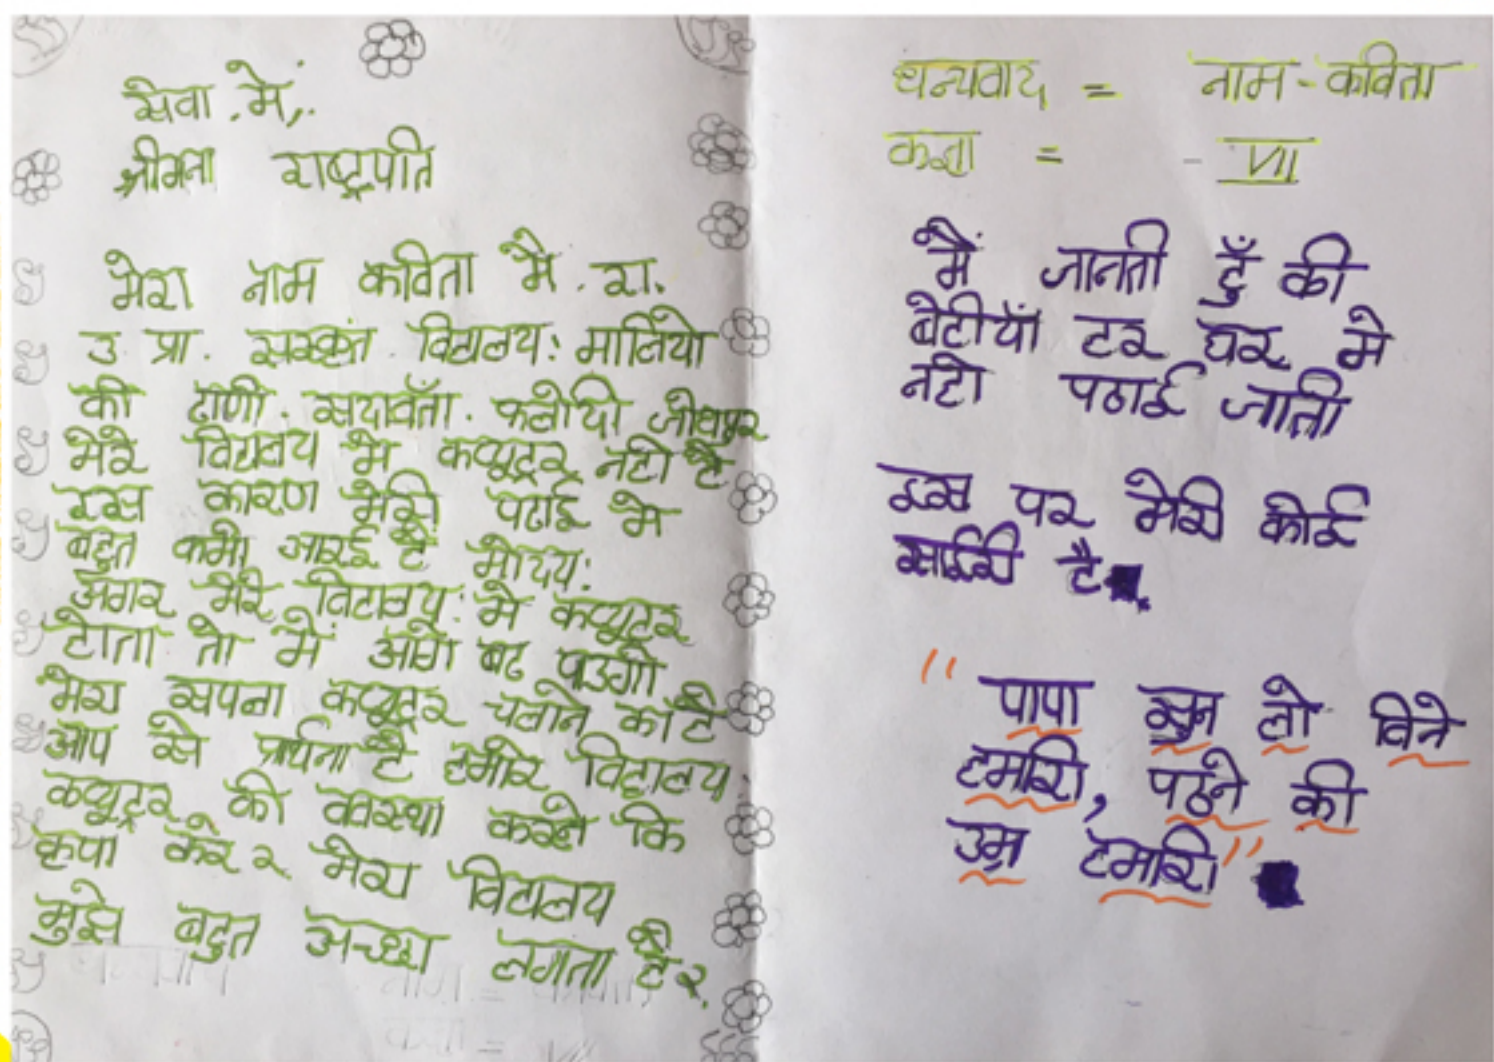 सेवा में,
श्रीमान राष्ट्रपति
मेरा नाम कविता मै. रा.
उ. प्रा. सस्कृत. विद्यालय: मालियो
की ढाणी. फलोदी जोधपुर
मेरे विद्यालय मे कप्युटर नही है
इस कारण मेरी पढाई मे
बहुत कमी आरई है मोदय:
अगर मेरे विद्यालय: मे कप्युटर
होता तो में आगे बढ पाउगी
मेरा सपना कप्युटर चलाने का है
आप से प्रार्थना है हमारे विद्यालय:
कप्युटर की वयस्था करने कि
कृपा करे २ मेरा विद्यालय
मुझे बहुत अच्छा लगता है २.
धन्यवाद = नाम - कविता
कक्षा = - VII
मैं जानती हुँ की
बेटीयाँ हर घर मे
नही पठाई जाती
इस पर मेरी कोई
साईरी है.
"पापा सुन लो विने
हमारी, पढने की
उम्र हमारी"